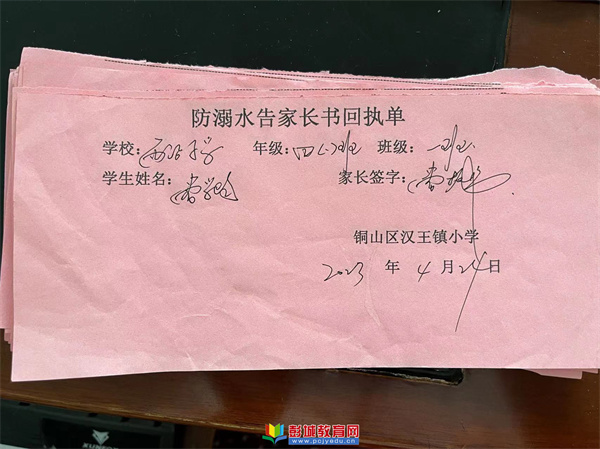 防溺水告家长书回执单
学校: 小学 年级: 四(1)班 班级: 一班
学生姓名: 家长签字:
铜山区汉王镇小学
2023 年 4 月 24 日
彭城教育网
www.pcjyedu.cn